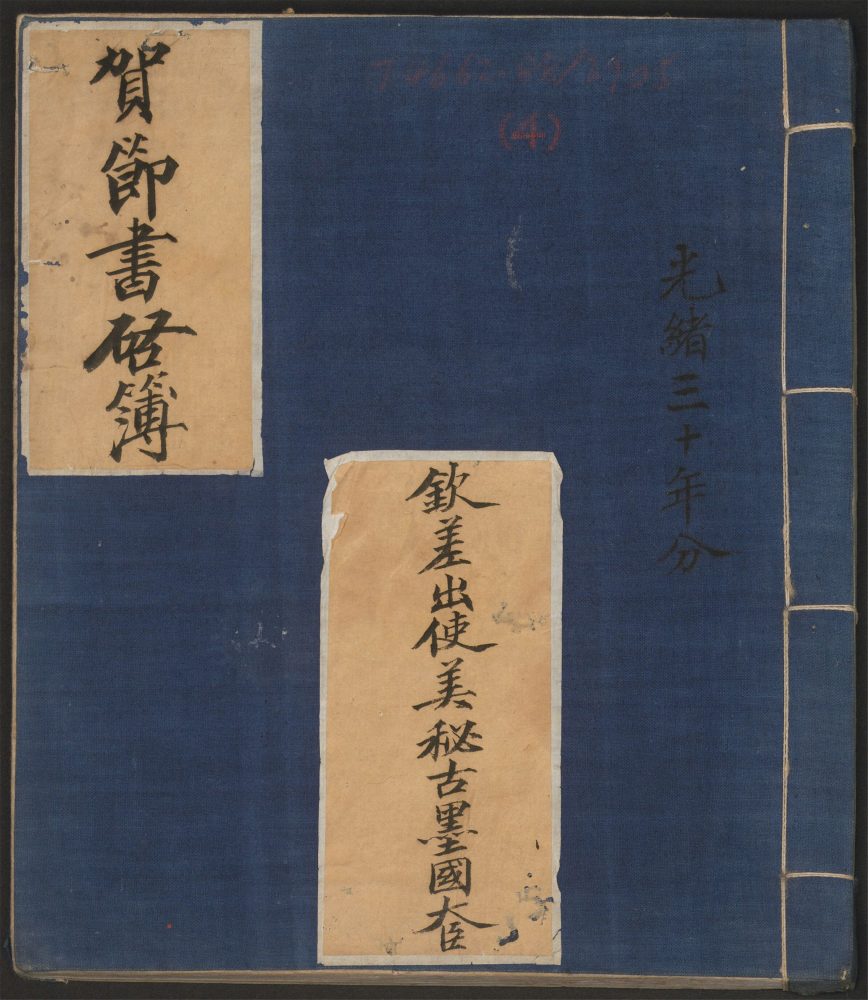 (4)
光緒三十年分
欽差出使美秘古墨國大臣
賀節書啓簿